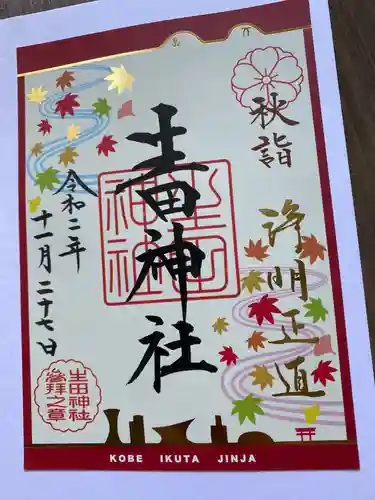 秋詣
浄明正直
生田神社
生田神社
令和二年
十一月二十七日
生田神社
参拝之章
KOBE IKUTA JINJA